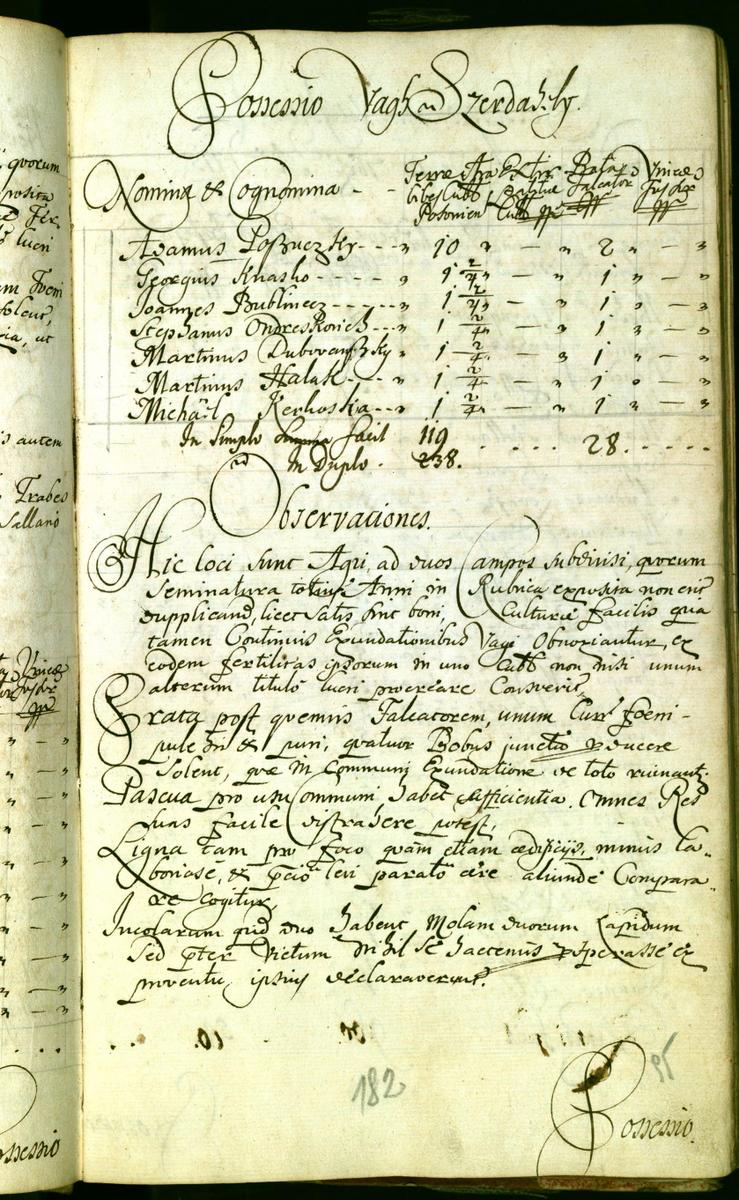 Possessio Vagh Szerdahely.
Nomina et Cognomina - - Terre Ara Extir Prata Vinea
biles Cubb Falcator Fossor
Posonien Cubb
Adamus - - - " 10 " - " 2 " - "
Georgius Knasko - - - - " 1 2/4 " - " 1 " - "
Joannes Bublinecz - - - - " 1 2/4 " - " 1 " - "
Stephanus Ondreskovich - - " 1 2/4 " - " 1 " - "
Martinus " 1 2/4 " - " 1 " - "
Martinus Halak - - " 1 2/4 " - " 1 " - "
Michäel Kerhoska - - " 1 2/4 " - " 1 " - "
In Simplo facit 119 . . . . 28 . . . . .
In Duplo . 238.
Observationes.
Hic loci sunt Agri, ad duos Campos subdivisi, quorum
Seminatura totius Anni in Rubrica exposita non erit
dupplicand, licet satis sint boni, Culturæ facilis qua
tamen Continuis Exundationibus Vagi Obnoxiantur, ex
eodem fertilitas ipsorum in uno Cubb non nisi unum
alterum titulo lucri procreare Consvevit,
Prata post quemvis Falcatorem, unum Curr foeni
et puri, quatuor Bobus junctis producere
Solent, quæ in Communi Exundatione de toto ruinant.
Pascua pro usu Communi habet sufficientia. Omnes Res
suas facile distrahere potest,
Ligna tam pro foco quam etiam ædificijs, minus la-
boriose, et levi parato ære aliunde Compara-
re cogitur,
Incolarum quid duo habent Molam duorum Lapidum
Sed præter Victum Nihil se hactenus ex
proventu ipsius declaraverunt.
182
95
Possessio